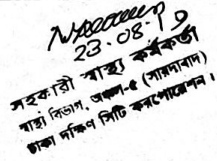 23.08.
সহকারী স্বাস্থ্য কর্মকর্তা
স্বাস্থ্য বিভাগ, অঞ্চল-৫ (সায়দাবাদ)
ঢাকা দক্ষিণ সিটি কর্পোরেশন।